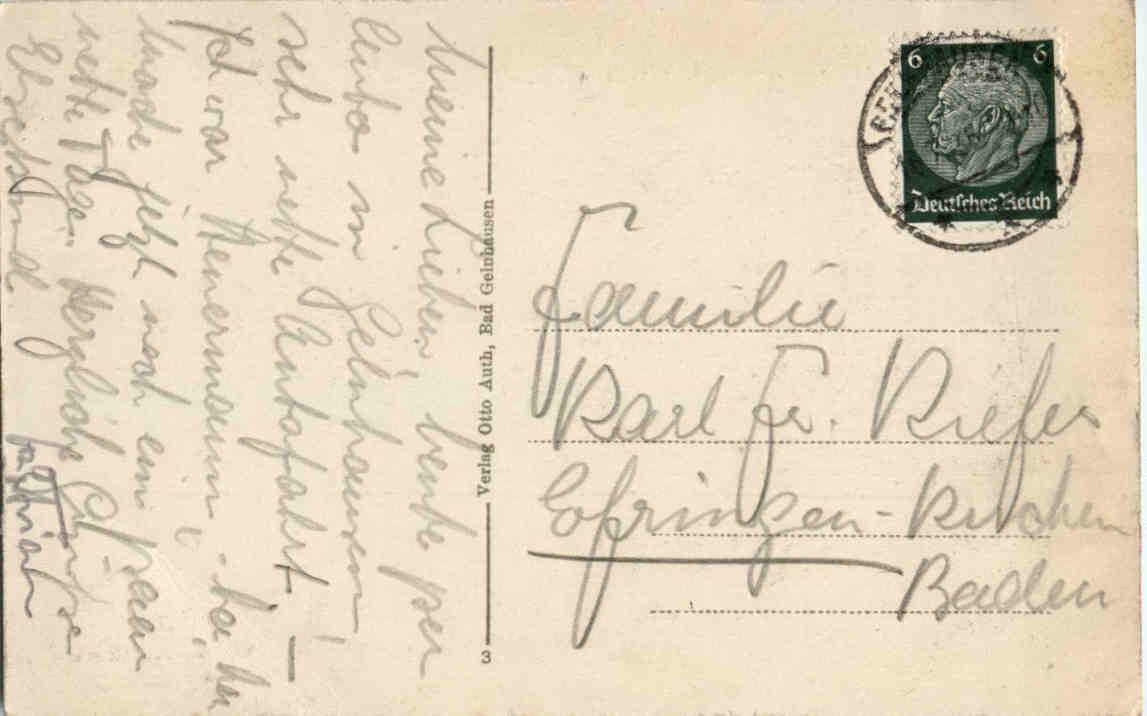 Meine Lieben, heute per
Auto in Gelnhausen,
sehr nette Autofahrt –
Ich war
jetzt noch ein paar
nette Tage. Herzliche Grüße
Verlag Otto Auth, Bad Gelnhausen
3
6 6
Deutsches Reich
Familie
Karl Fr. Kiefer
Efringen-Kirchen
Baden